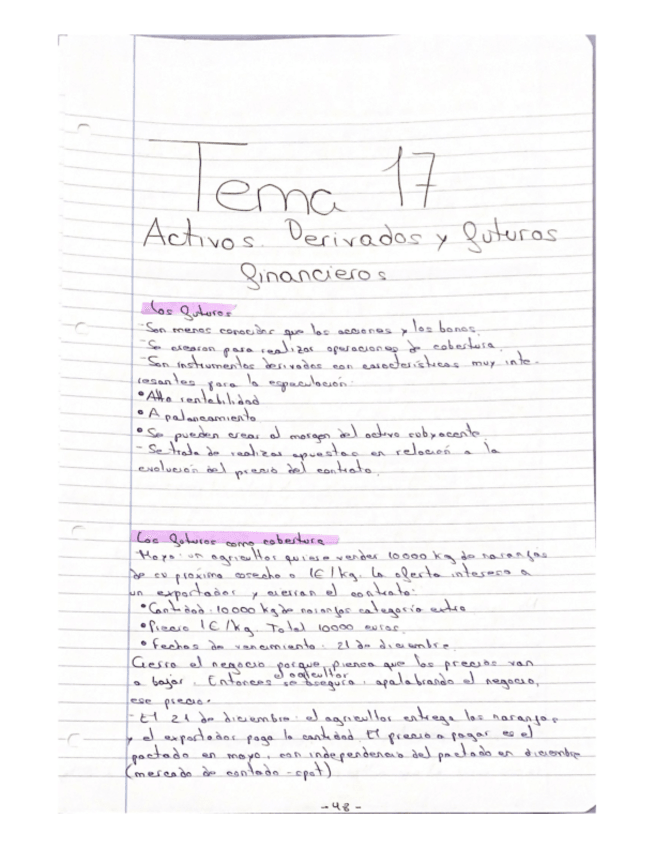 Tema 17
Activos Derivados y futuros
financieros
Los futuros
-Son menos conocidos que las acciones y los bonos.
-Se crearon para realizar operaciones de cobertura.
-Son instrumentos derivados con características muy inte-
resantes para la especulación:
• Alta rentabilidad
• Apalancamiento
• Se pueden crear al margen del activo subyacente.
- Se trata de realizar apuestas en relación a la
evolución del precio del contrato.
Los futuros como cobertura
-Mayo: un agricultor quiere vender 10000 kg de naranjas
de su próxima cosecha a 1€/kg. La oferta interesa a
un exportador y cierran el contrato:
• Cantidad: 10000 kg de naranjas categoría extra
• Precio 1€/kg. Total 10000 euros.
• Fechas de vencimiento: 21 de diciembre.
Cierra el negocio porque piensa que los precios van
a bajar. Entonces el agricultor se asegura, apalabrando el negocio,
ese precio.
- El 21 de diciembre: el agricultor entrega las naranjas
y el exportador paga la cantidad. El precio a pagar es el
pactado en mayo, con independencia del pactado en diciembre
(mercado de contado - spot)
- 48 -